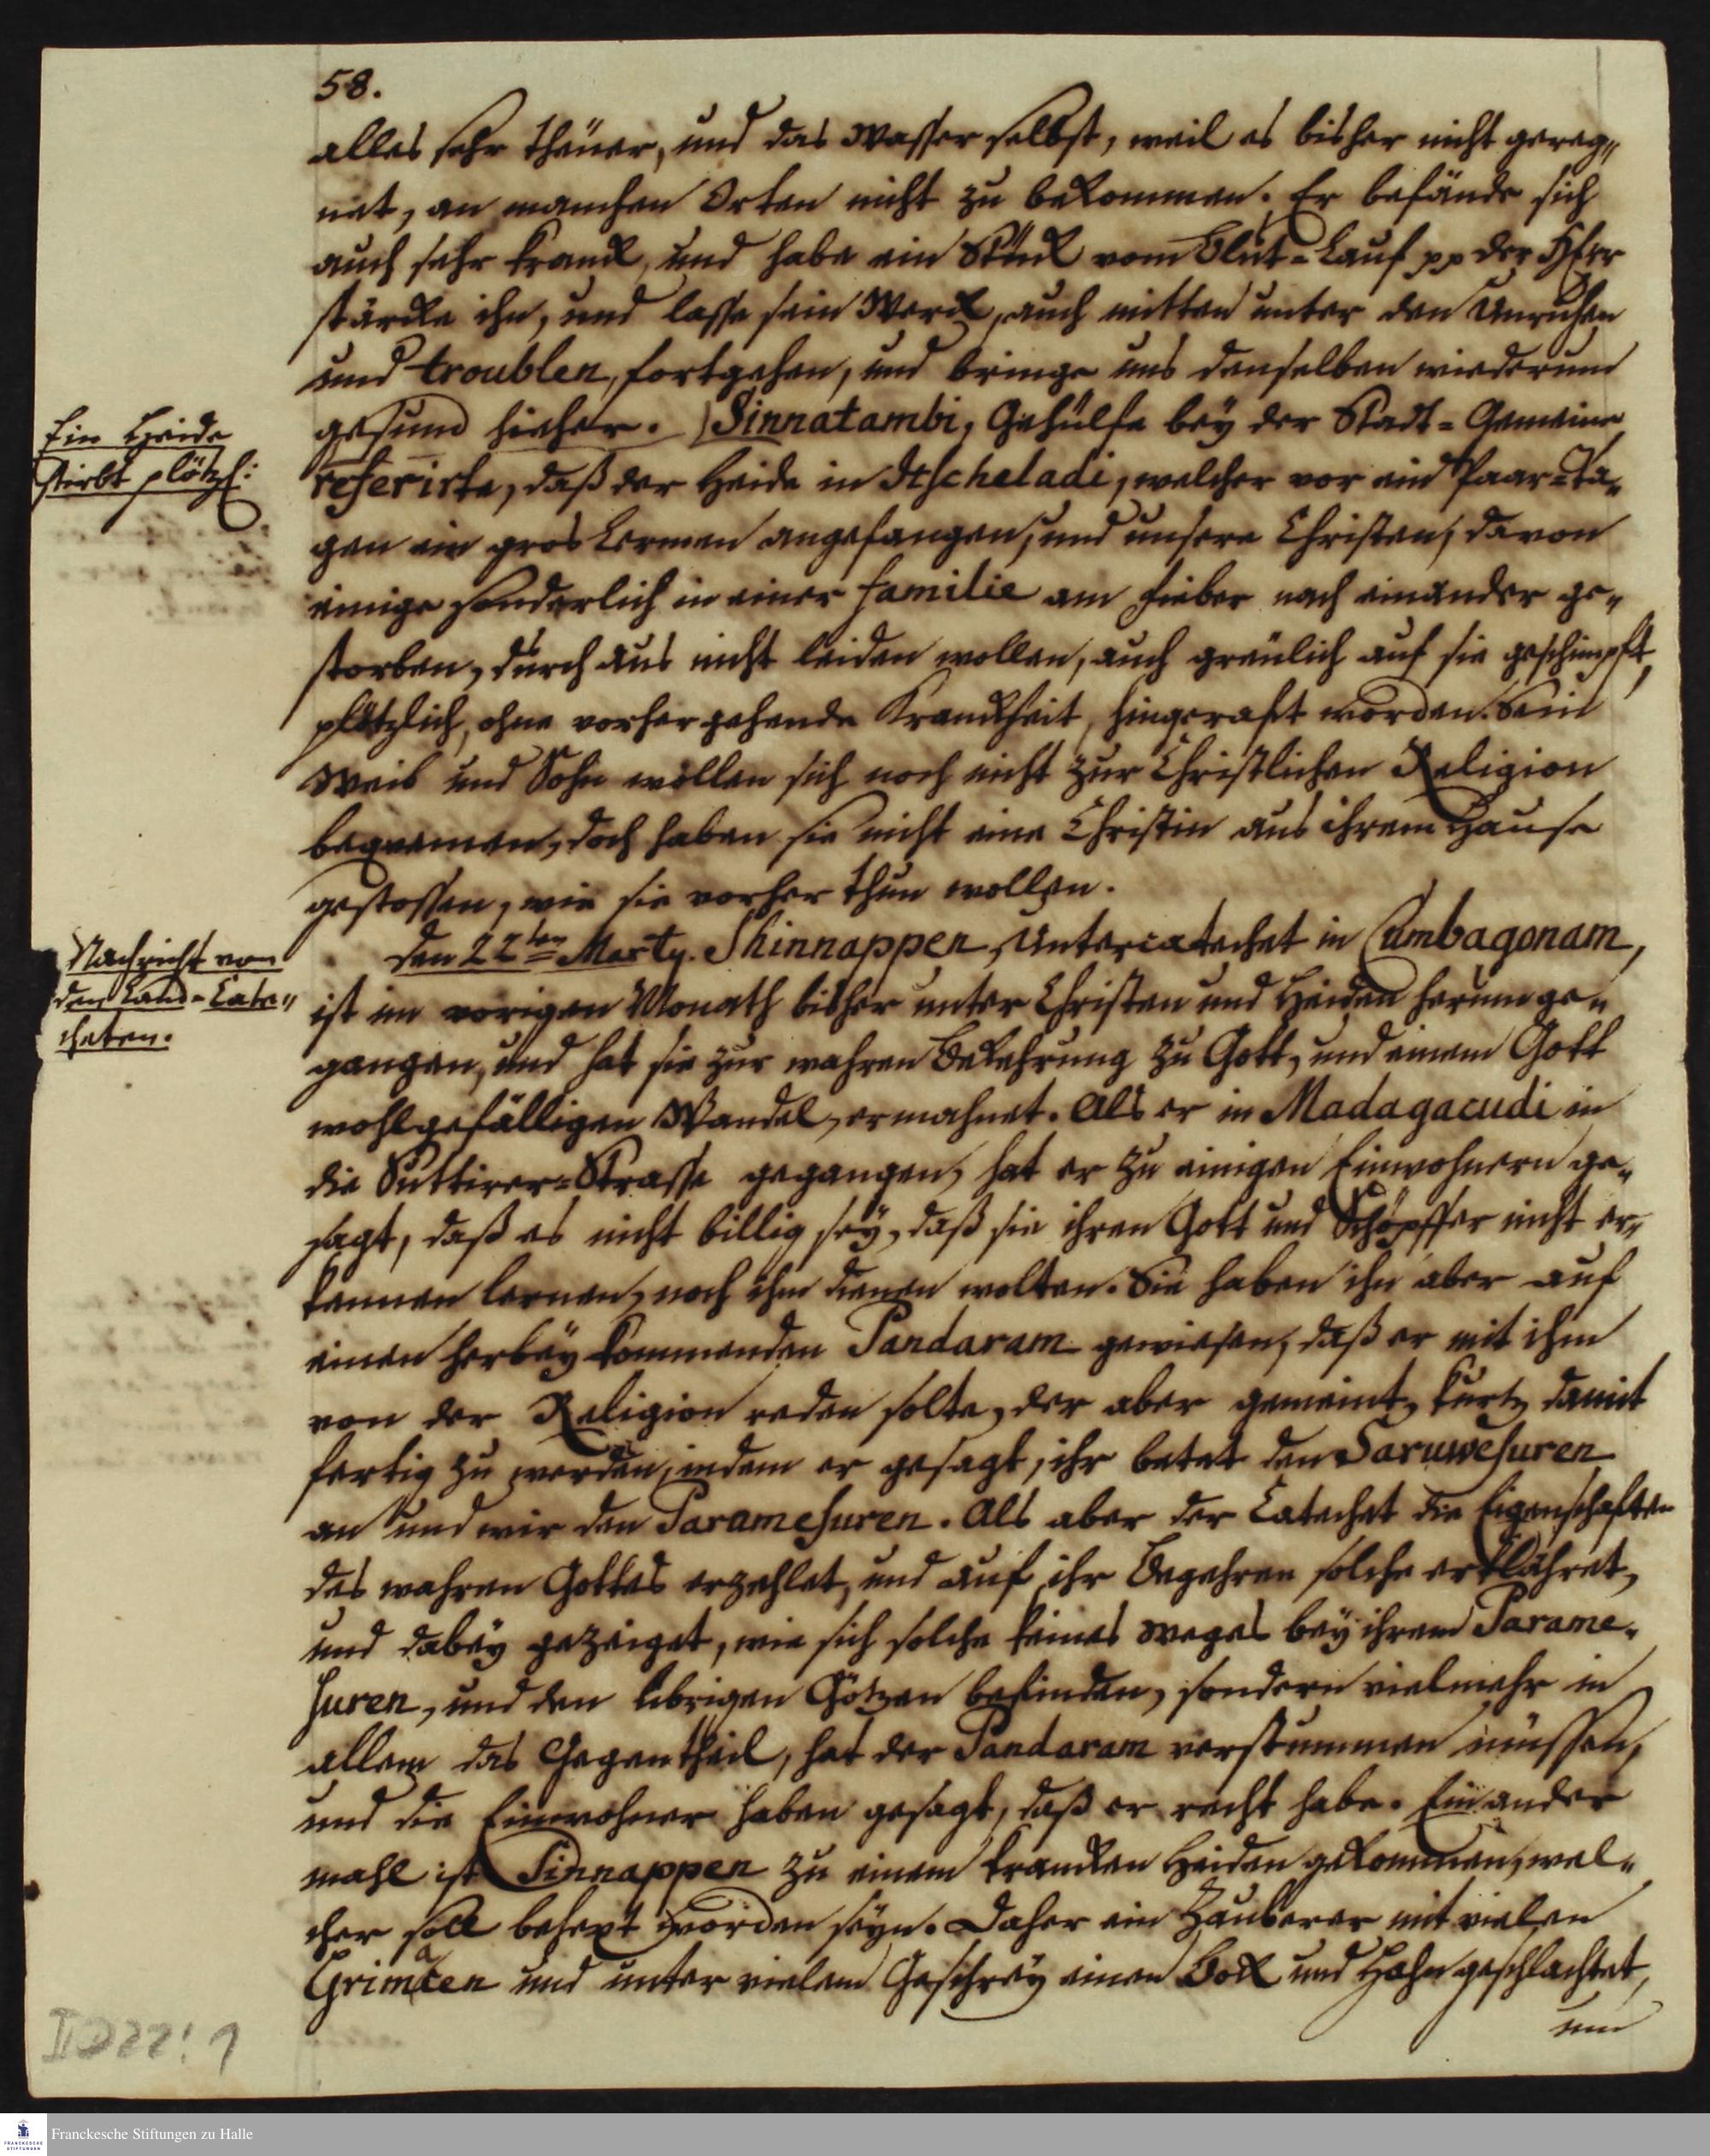 58.
alles sehr theuer, und das Wasser selbst, weil es bisher nicht gereg„
net, an manchen Orten nicht zu bekommen. Er befände sich
auch sehr kranck, und habe ein Stück vom Blut-Lauf pp der HErr
stärcke ihn, und lasse sein Werck, auch mitten unter den Unruhen
und troublen, fortgehen, und bringe uns denselben wiederum
gesund hieher. Sinnatambi, Gehülfe bey der Stadt-Gemeine,
Ein Heide
stirbt plötzl:
referirte, daß der Heide in Itscheladi, welcher vor ein Paar Ta„
gen ein gros Lermen angefangen, und unsere Christen, davon
einige sonderlich in einer familie am Fieber nach einander ge„
storben, durchaus nicht leiden wollen, auch greulich auf sie geschimpft,
plötzlich, ohne vorhergehende Kranckheit, hingeraft worden. Sein
Weib und Sohn wollen sich noch nicht zur Christlichen Religion
bequemen, doch haben sie nicht eine Christin aus ihrem Hause
gestossen, wie sie vorher thun wollen.
Nachricht von
den Land-Cate„
cheten.
den 22ten Marty. Shinnappen, Untercatechet in Cumbagonam,
ist im vorigen Monath bisher unter Christen und Heiden herumge„
gangen, und hat sie zur wahren Bekehrung zu Gott, und einem Gott
wohlgefälligen Wandel, ermahnet. Als er in Madagacudi in
die Suttirer-Strasse gegangen, hat er zu einigen Einwohnern ge„
sagt, daß es nicht billig sey, daß sie ihren Gott und Schöpffer nicht er„
kennen lernen, noch ihm dienen wolten. Sie haben ihn aber auf
einen herbey kommenden Pandaram gewiesen, daß er mit ihm
von der Religion reden solte, der aber gemeint, kurtz damit
fertig zu werden, indem er gesagt, ihr betet den Saruwesuren
an und wir den Paramesuren. Als aber der Catechet die Eigenschaften
des wahren Gottes erzehlet, und auf ihr Begehren solche erklähret,
und dabey gezeiget, wie sich solche keines weges bey ihrem Parame„
suren, und den übrigen Götzen befinden, sondern vielmehr in
allem das Gegentheil, hat der Pandaram verstummen müssen,
und die Einwohner haben gesagt, daß er recht habe. Ein ander
mahl ist Sinnappen zu einem krancken Heiden gekommen, wel„
cher soll behext worden seyn. Daher ein Zauberer mit vielen
Grimacen und unter vielem Geschrey einen Bock und Hahn geschlachtet,
um
Franckesche Stiftungen zu Halle